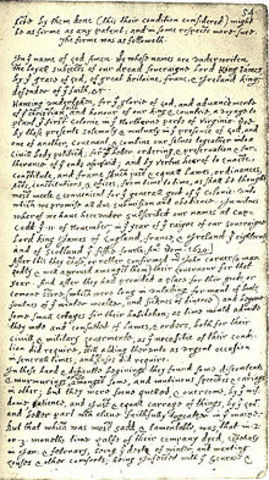 54
by them done (this their condition considered) might
be as firme as any patent; and in some respects more sure.
The forme was as followeth.
In yͤ name of god Amen. We whose names are underwriten,
the loyall subjects of our dread soveraigne Lord King James
by yͤ grace of god, of great Britaine, franc, & Ireland king,
defender of yͤ faith, &c
Haveing undertaken, for yͤ glorie of god, and advancemente
of yͤ christian faith and honour of our king & countrie, a voyage to
plant yͤ first colonie in yͤ Northerne parts of Virginia. doe
by these presents solemnly & mutualy in yͤ presence of god, and
one of another, covenant, & combine our selves togeather into a
civill body politick; for our better ordering, & preservation & fur-
therance of yͤ ends aforesaid; and by vertue hearof to enacte,
constitute, and frame shuch just & equall Lawes, ordinances,
Acts, constitutions, & offices, from time to time, as shall be thought
most meete & convenient for yͤ generall good of yͤ colonie: unto
which we promise all due submission and obedience. In witnes
wherof we have hereunder subscribed our names at Cap-
Codd yͤ .11. of November, in yͤ year of yͤ raigne of our soveraigne
Lord king James of England, france, & Ireland yͤ eighteenth
and of Scotland yͤ fiftie fourth. An°: Dom. 1620.
After this they chose, or rather confirmed mr John Carver (a man
godly & well approved amongst them) their Governour for that
year. And after they had provided a place for their goods, or
comone store, (which were long in unlading for want of boats,
foulnes of yͤ winter weather, and sicknes of diverce) and begune
some small cottages for their habitation; as time would admitte
they mette and consulted of lawes, & orders, both for their
civill & military Govermente, as yͤ necessitie of their condi-
tion did require, still adding therunto as urgent occasion
in severall times, and as cases did require.
In these hard & difficulte beginings they found some discontents
& murmurings amongst some, and mutinous speeches & cariages
in other; but they were soone quelled, & overcome, by yͤ wis-
dome, patience, and just & equall carrage of things, by yͤ Govr
and better part wch clave faithfully togeather in yͤ maine.
But that which was most sadd, & lamentable, was, that in .2.
or .3. moneths time halfe of their company dyed, espetialy
in Jan: & february, being yͤ depth of winter, and wanting
houses & other comforts; being infected with yͤ scurvie &